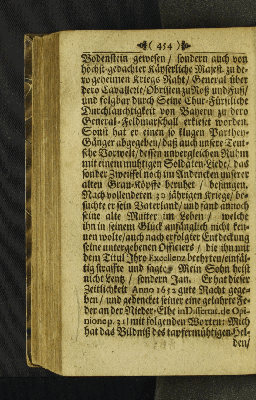 ( 454 )
Bodenstein gewesen / sondern auch von
höchst-gedachter Käyserliche Majest. zu de-
ro geheimen Kriegs Raht / General über
dero Cavallerie / Obristen zu Roß und Fuß /
und folgbar durch Seine Chur-Fürstliche
Durchläuchtigkeit von Bayern zu dero
General-Feldmarschall erkieset worden.
Sonst hat er einen so klugen Parthey-
Gänger abgegeben / daß auch unsere Teut-
sche Vorwelt / dessen unvergleichen Ruhm
mit einem muhtigen Soldaten-Liede / das
sonder Zweiffel noch im Andencken unserer
alten Grau-Köpffe beruhet / besungen.
Nach vollendeten 30 jährigen Kriege / be-
suchte er sein Vaterland / und fand annoch
seine alte Mutter im Leben / welche
ihn in seinem Glück anfänglich nicht ken-
nen wolte / auch nach erfolgter Entdeckung
seine untergebenen Officiers / die ihn mit
dem Titul Ihro Excellenz beehrten / einfäl-
tig straffte und sagte: Mein Sohn heist
nicht Lentz / sondern Jan. Er hat dieser
Zeitlichkeit Anno 1652 gute Nacht gege-
ben / und gedencket seiner eine gelahrte Fe-
der an der Nieder-Elbe in Dissertat. de Opi-
nione p. 31 / mit folgenden Worten: Mich
hat das Bildniß des tapfermühtigen Hel-
den /